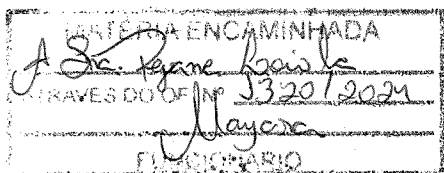 MATÉRIA ENCAMINHADA
A Sra. Rejane
ATRAVES DO OF. Nº 3320/2021
Mayara
FUNCIONARIO